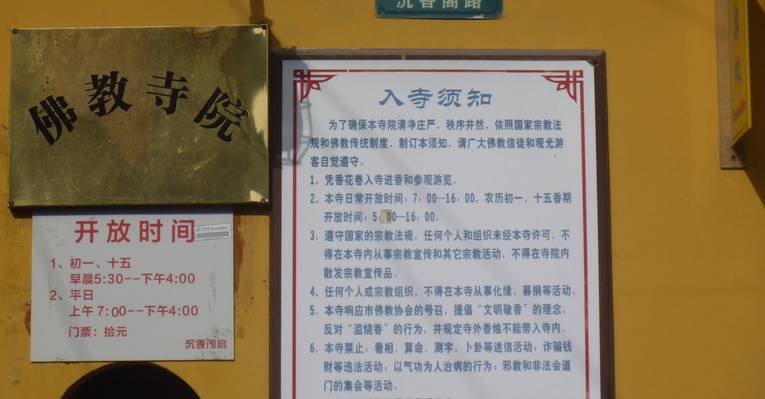 沉香阁路
佛教寺院
开放时间
1、初一、十五
早晨5:30--下午4:00
2、平日
上午7:00--下午4:00
门票：拾元
沉香阁启
入寺须知
为了确保本寺院清净庄严，秩序井然，依照国家宗教法
规和佛教传统制度，制订本须知，请广大佛教信徒和观光游
客自觉遵守。
1．凭香花卷入寺进香和参观游览。
2．本寺日常开放时间：7：00—16：00，农历初一、十五香期
开放时间：5：00—16：00。
3．遵守国家的宗教法规，任何个人和组织未经本寺许可，不
得在本寺内从事宗教宣传和其它宗教活动，不得在寺院内
散发宗教宣传品。
4．任何个人或宗教组织，不得在本寺从事化缘，募捐等活动。
5．本寺响应市佛教协会的号召，提倡“文明敬香”的理念，
反对“滥烧香”的行为，并规定寺外香烛不能带入寺内。
6．本寺禁止：看相，算命，测字，卜卦等迷信活动；诈骗钱
财等违法活动；以气功为人治病的行为；邪教和非法会道
门的集会等活动。